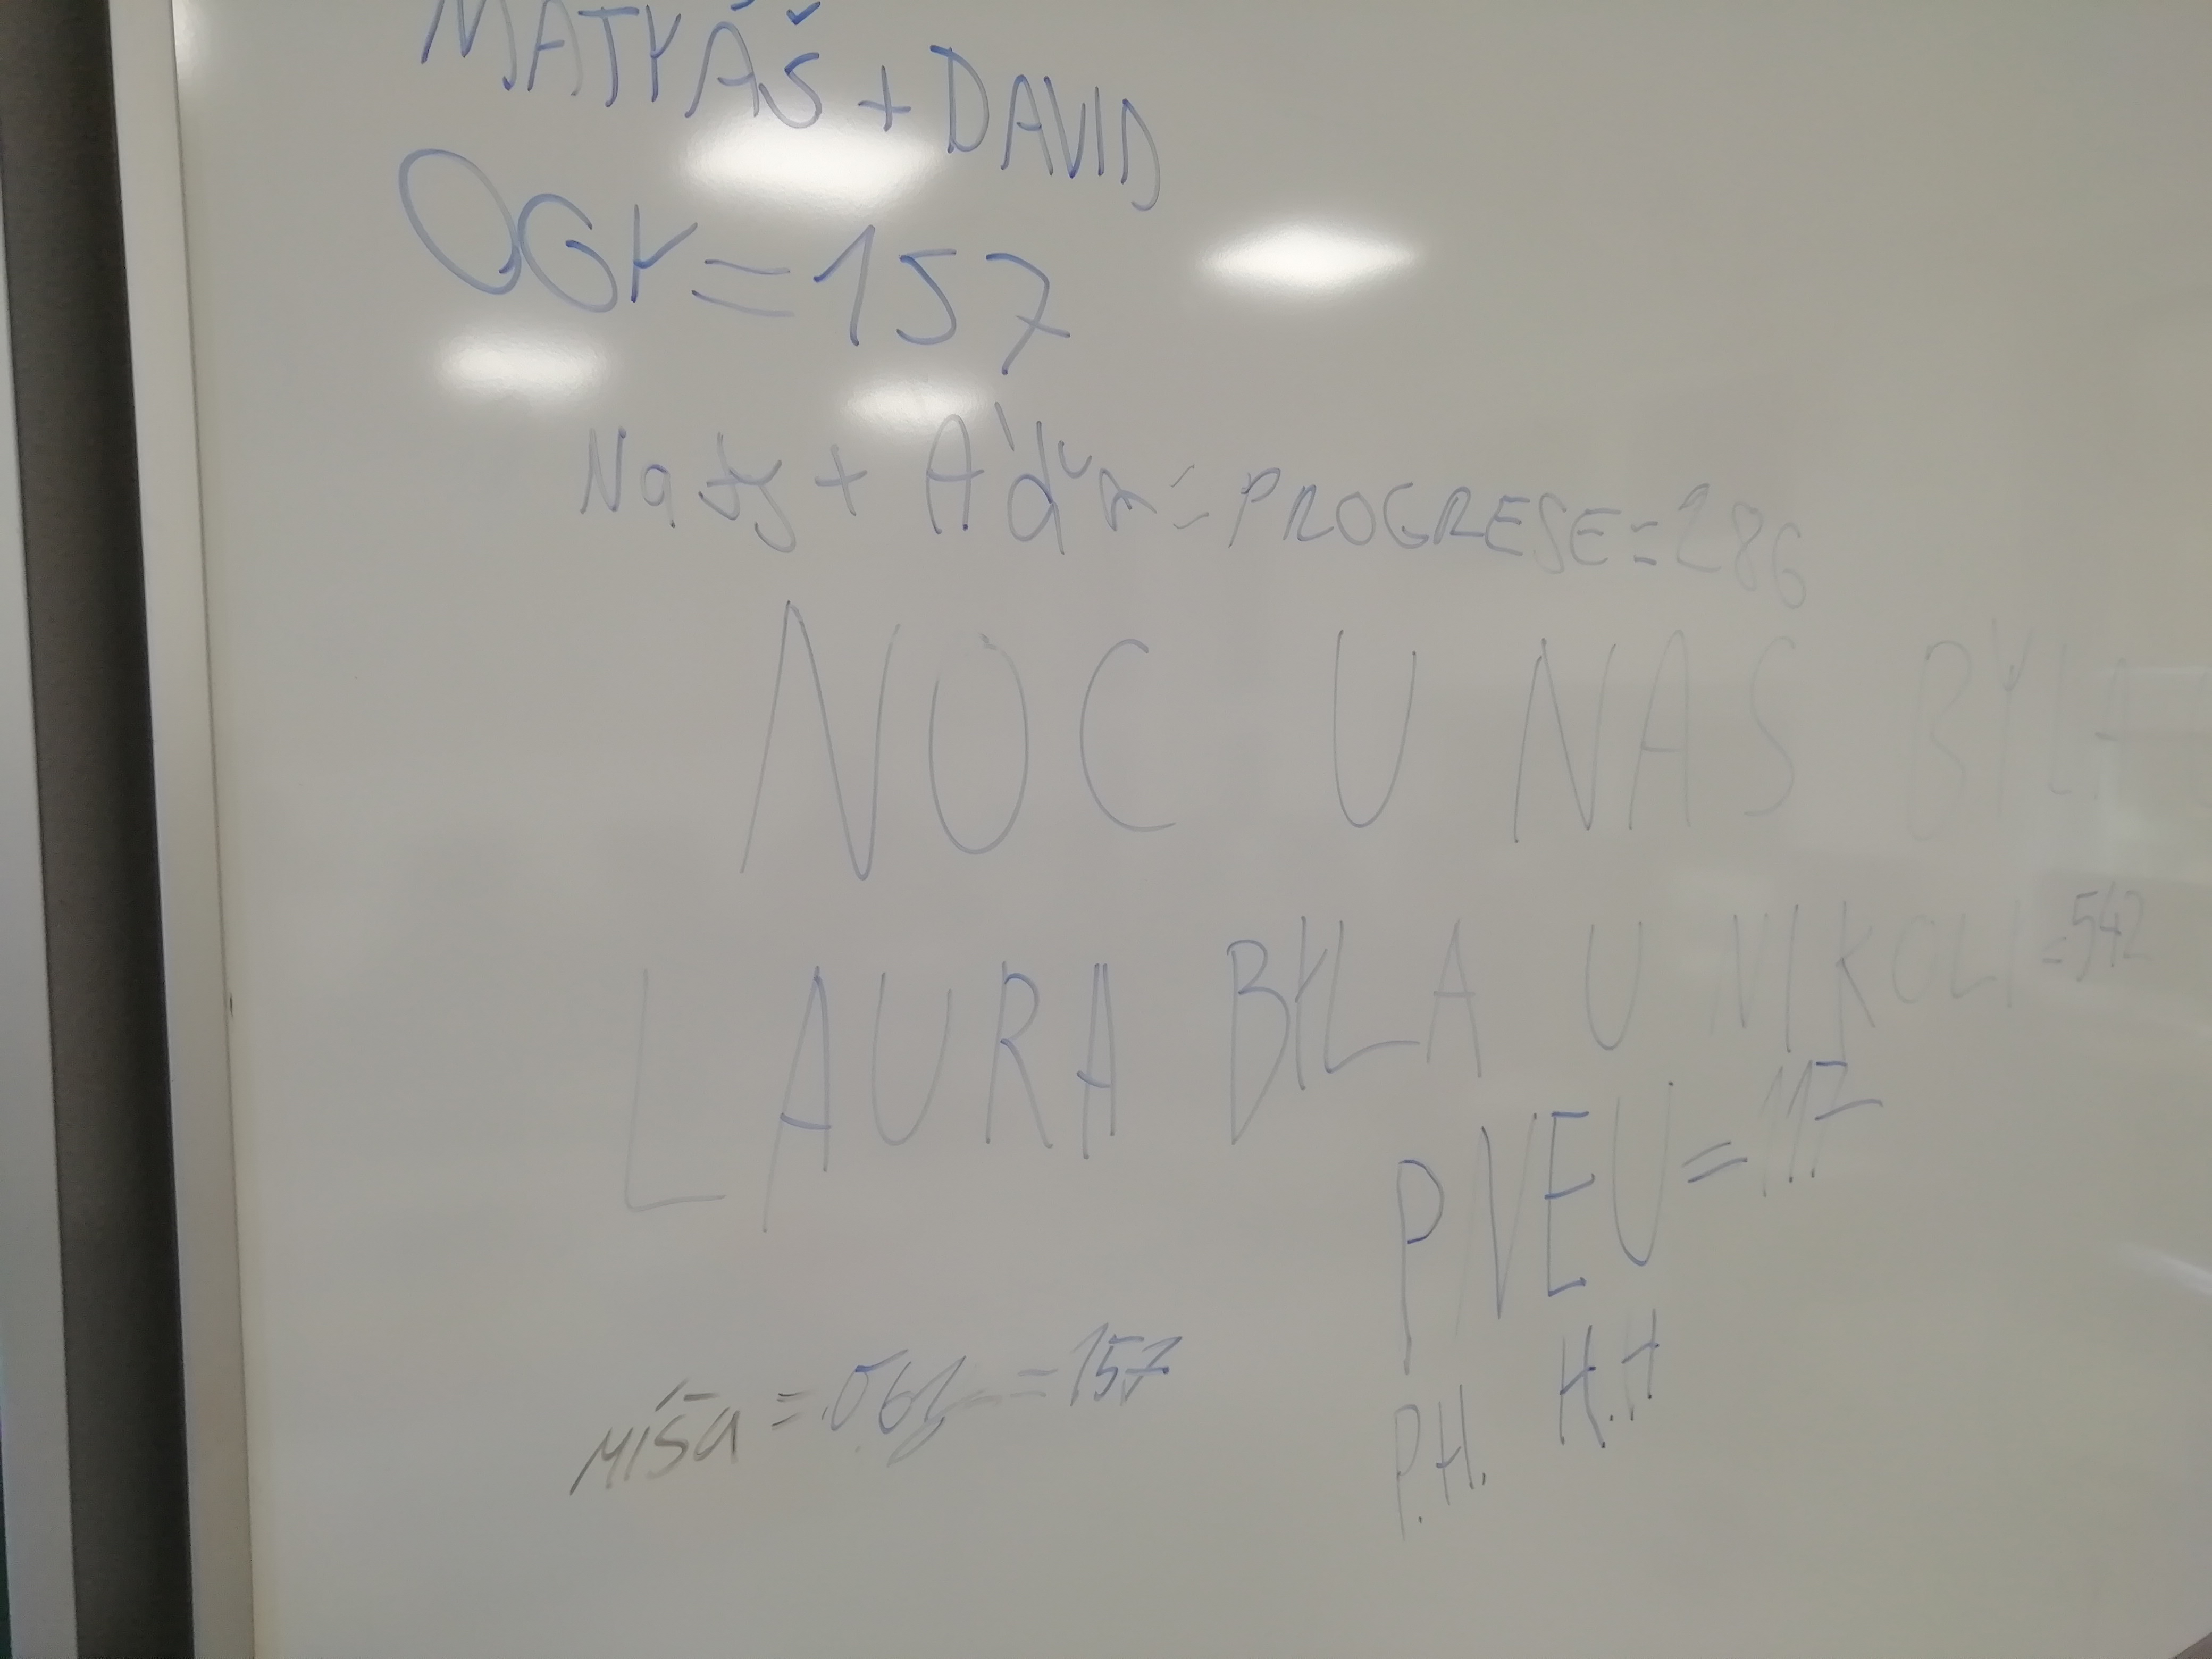 MATYÁŠ + DAVID
OGY=157
Naty + Ádʼa = PROGRESE=286
NOC U NAS BYLA
LAURA BYLA U NIKOLI =542
PNEU=117
P.H. H.H
MÍŠA = OGY = 157